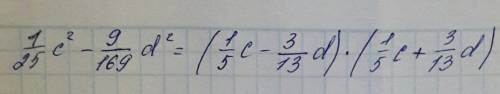 1/25 c² - 9/169 d² = (1/5 c - 3/13 d) · (1/5 c + 3/13 d)